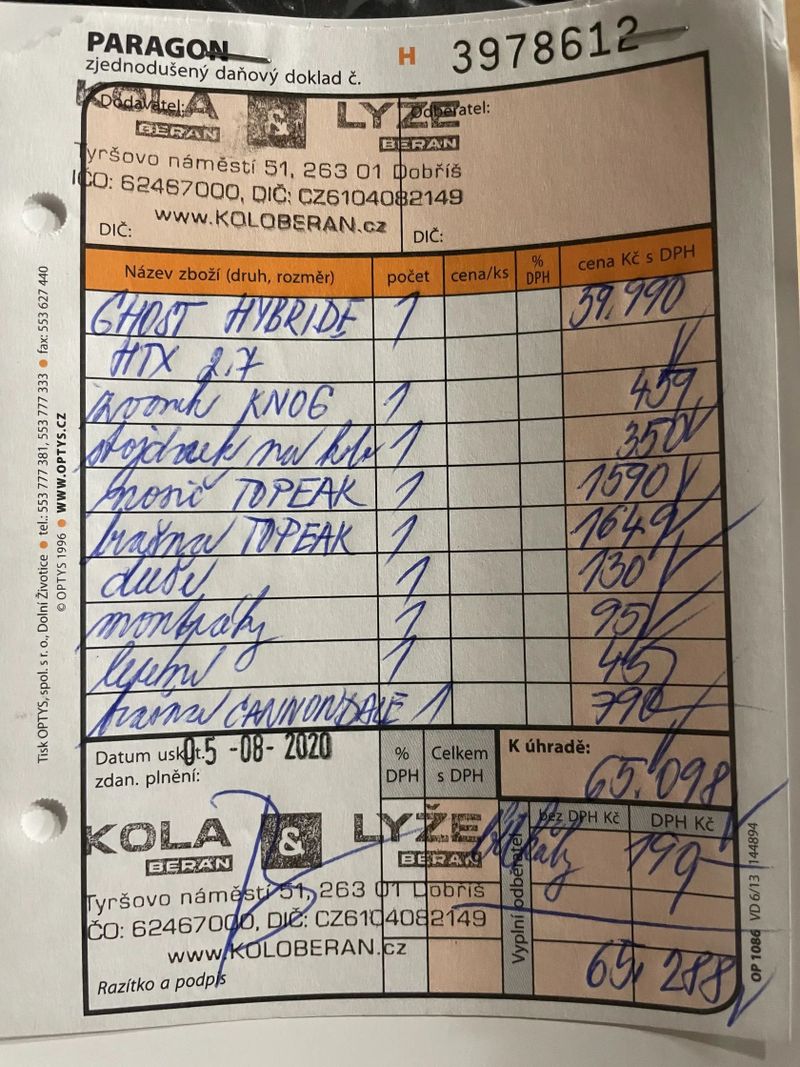 PARAGON
zjednodušený daňový doklad č.
H 3978612
Dodavatel:
Odběratel:
KOLA & LYŽE
BERAN BERAN
Tyršovo náměstí 51, 263 01 Dobříš
IČO: 62467000, DIČ: CZ6104082149
www.KOLOBERAN.cz
DIČ: DIČ:
Název zboží (druh, rozměr) počet cena/ks % DPH cena Kč s DPH
GHOST HYBRIDE 1 59.990
HTX 2.7
zvonek KNOG 1 459
stojánek na kolo 1 350
nosič TOPEAK 1 1590
brašna TOPEAK 1 1649
duše 1 130
montpáky 1 95
lepení 1 45
brašna CANNONDALE 1 790
Datum uskut. 05-08-2020
zdan. plnění:
% DPH
Celkem s DPH
K úhradě:
65.098
bez DPH Kč DPH Kč
Vyplní odběratel
KOLA & LYŽE
BERAN BERAN
Tyršovo náměstí 51, 263 01 Dobříš
IČO: 62467000, DIČ: CZ6104082149
www.KOLOBERAN.cz
65.288
Razítko a podpis
Tisk OPTYS, spol. s r. o., Dolní Životice • tel.: 553 777 381, 553 777 333 • fax: 553 627 440
© OPTYS 1996 • WWW.OPTYS.CZ
OP 1086 VD 6/13 144894